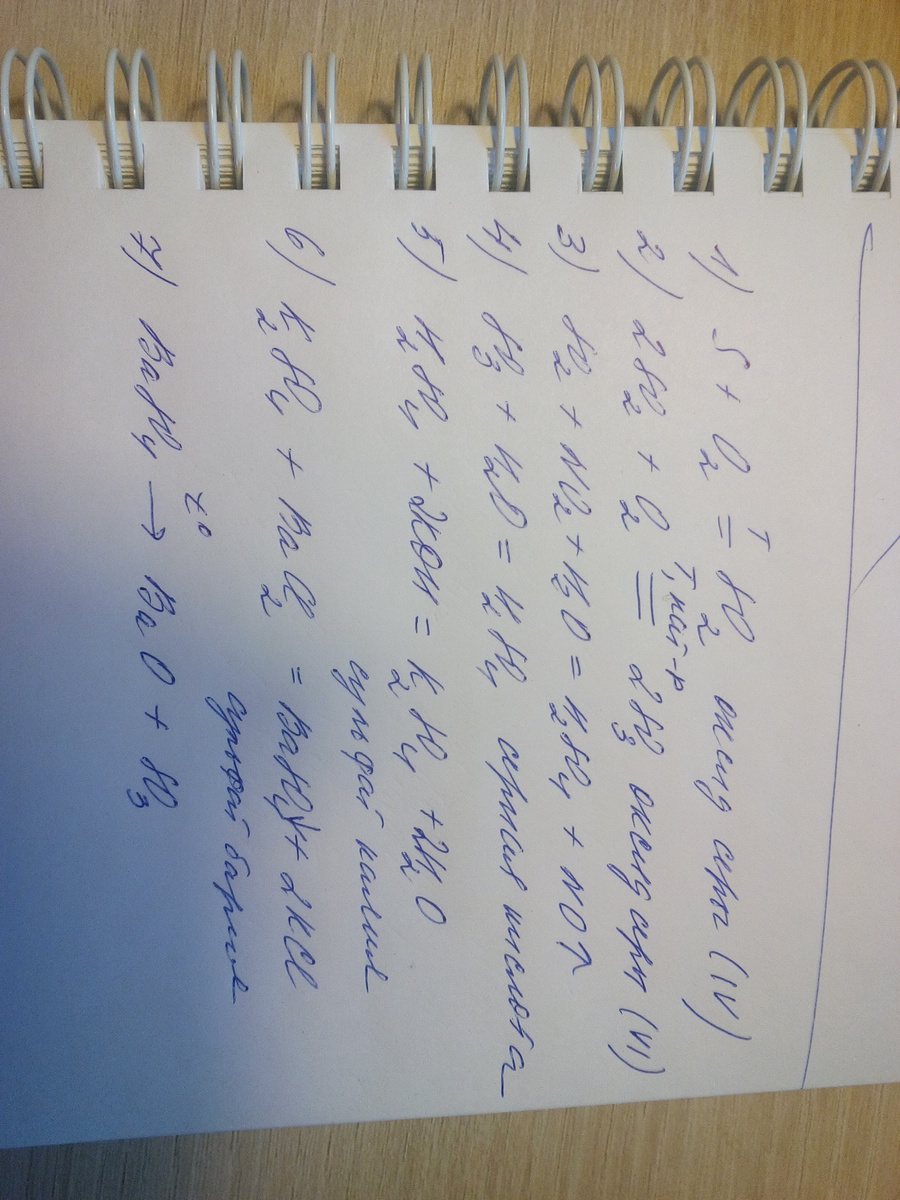 1) S + O₂ =ᵀ SO₂ оксид серы (IV)
2) 2SO₂ + O₂ = T, кат-р 2SO₃ оксид серы (VI)
3) SO₂ + NO₂ + H₂O = H₂SO₄ + NO↑
4) SO₃ + H₂O = H₂SO₄ серная кислота
5) H₂SO₄ + 2KOH = K₂SO₄ + 2H₂O
сульфат калия
6) K₂SO₄ + BaCl₂ = BaSO₄↓ + 2KCl
сульфат бария
t°
7) BaSO₄ → BaO + SO₃